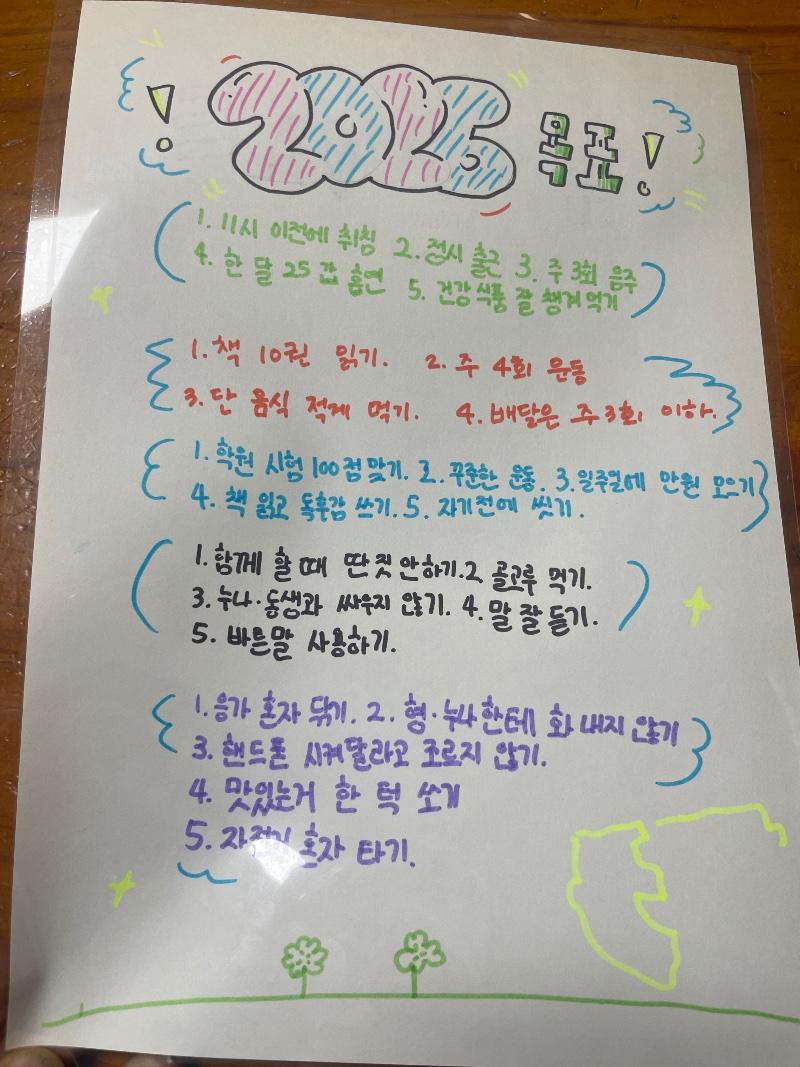 ! 2026 목표!
1. 11시 이전에 취침 2. 정시 출근 3. 주 3회 음주
4. 한 달 25갑 흡연 5. 건강식품 잘 챙겨 먹기
1. 책 10권 읽기. 2. 주 4회 운동
3. 단 음식 적게 먹기. 4. 배달은 주 3회 이하.
1. 학원 시험 100점 맞기. 2. 꾸준한 운동. 3. 일주일에 만원 모으기
4. 책 읽고 독후감 쓰기. 5. 자기전에 씻기.
1. 함께 할 때 딴짓 안하기. 2. 골고루 먹기.
3. 누나·동생과 싸우지 않기. 4. 말 잘 듣기.
5. 바른말 사용하기.
1. 응가 혼자 닦기. 2. 형·누나한테 화 내지 않기
3. 핸드폰 시켜달라고 조르지 않기.
4. 맛있는거 한 턱 쏘기
5. 자전거 혼자 타기.